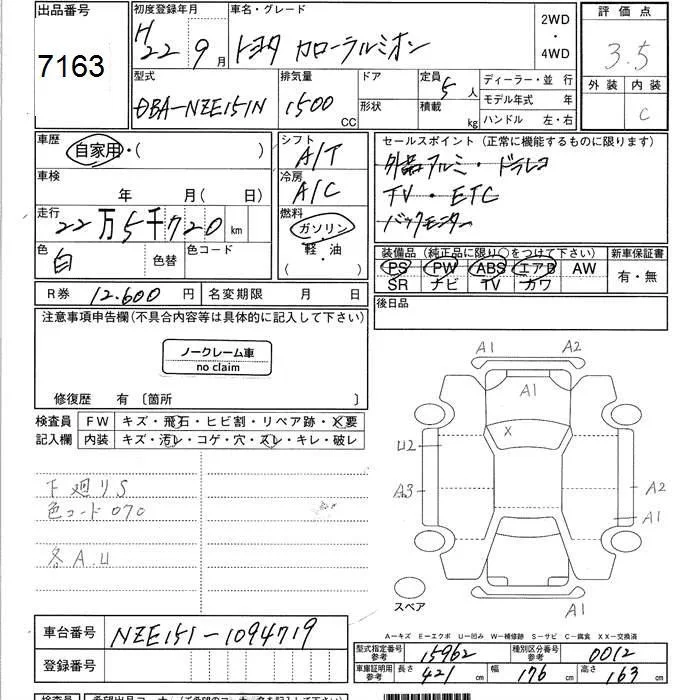 出品番号 初度登録年月 車名・グレード 2WD ・ 4WD 評価点
7163 H22 9月 トヨタ カローラルミオン 3.5
型式 排気量 ドア 定員 5人 ディーラー・並 行 外装 内装
DBA-NZE151N 1500 CC 形状 積載 kg モデル年式 年 C
ハンドル 左・右
車歴 自家用・( ) シフト A/T セールスポイント (正常に機能するものに限ります)
冷房 A/C 外品アルミ・ドラレコ
車検 年 月( 日) TV・ETC
走行 22万5千720km 燃料 ガソリン バックモニター
色 白 色替 色コード 軽・油 ( )
装備品 (純正品に限り○をつけて下さい) 新車保証書
PS PW ABS エアB AW 有・無
SR ナビ TV カワ
R券 12.600円 名変期限 月 日 後日品
注意事項申告欄(不具合内容等は具体的に記入して下さい)
ノークレーム車
no claim
修復歴 有〔箇所 〕
検査員 FW キズ・飛石・ヒビ割・リペア跡・X要
記入欄 内装 キズ・汚レ・コゲ・穴・スレ・キレ・破レ
下廻りS
色コード070
各A.U
A1 A2
A1
X
U2
A3 A2
A1
A1
スペア
A－キズ E－エクボ U－凹み W－補修跡 S－サビ C－腐食 XX－交換済
車台番号 NZE151-1094719
登録番号
型式指定番号 参考 15962 種別区分番号 参考 0012
車庫証明用 参考 長さ 421 cm 幅 176 cm 高さ 163 cm
検査員 希望出品コーナー(ご希望のコーナー